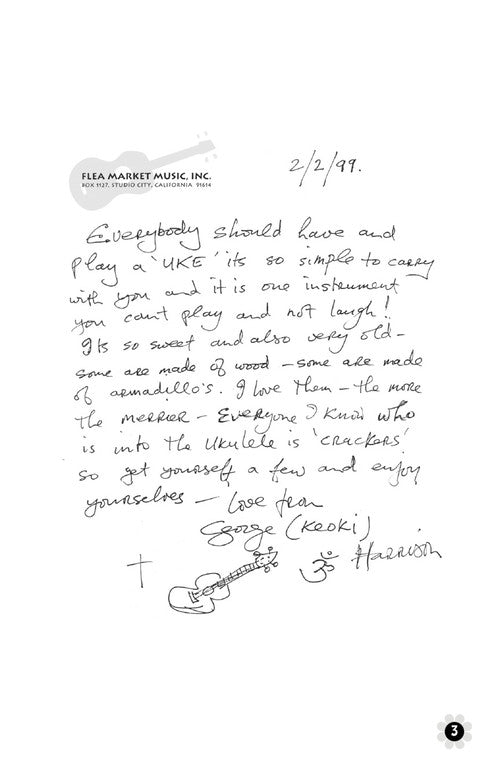 FLEA MARKET MUSIC, INC.
BOX 1127, STUDIO CITY, CALIFORNIA 91614
2/2/99.
Everybody should have and
play a 'UKE' its so simple to carry
with you and it is one instrument
you cant play and not laugh!
Its so sweet and also very old-
some are made of wood - some are made
of armadillo's. I love them - the more
the MERRIER - Everyone I know who
is into the Ukulele is 'CRACKERS'
so get yourself a few and enjoy
yourselves - Love from
George (KEOKI)
ॐ Harrison
3